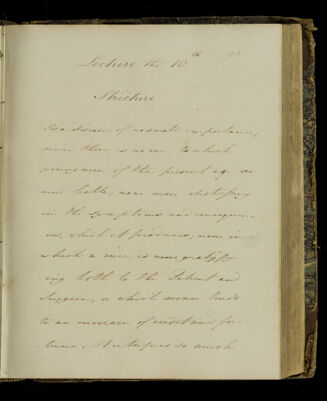 Lecture the 10th
Stricture
Is a disease of no small importance,
since there is no one to which
young men of the present age are
more liable; none more distressing
in the symptoms and consequen-
ces, which it produces; none in
which a cure is more gratify-
ing both to the Patient and
Surgeon, or which sooner leads
to an increase of credit and for-
tune. It interferes so much